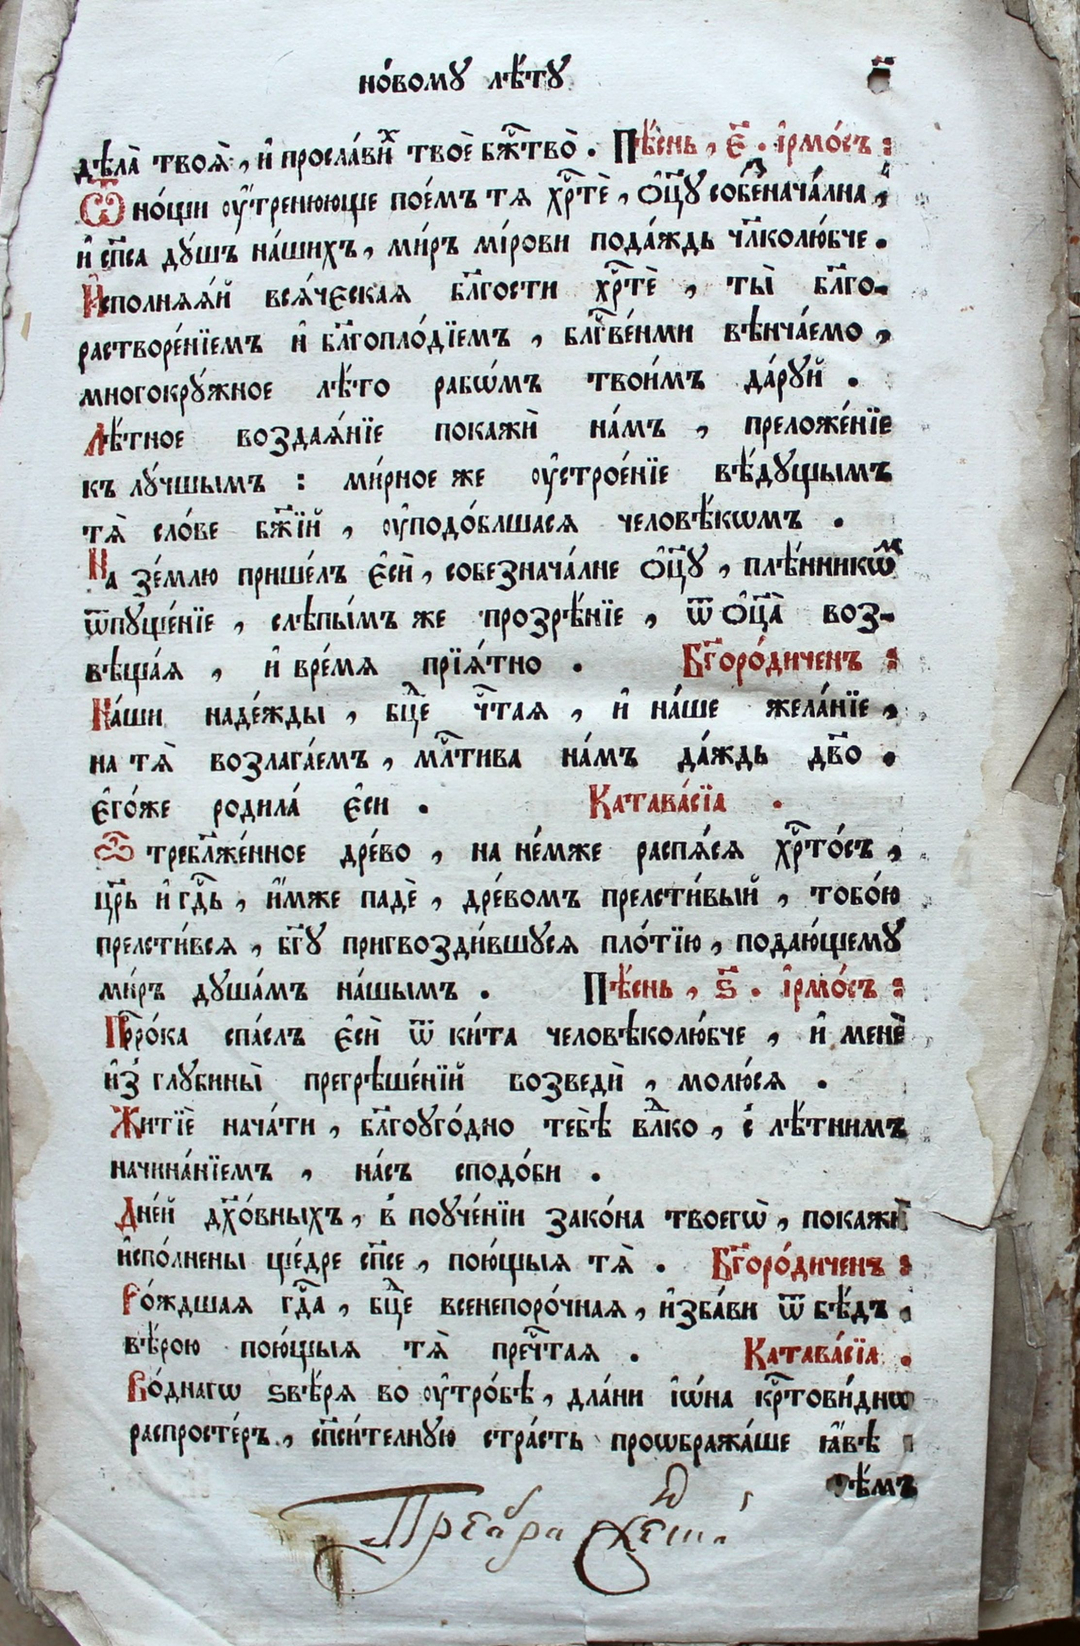 но́вому лѣ́ту
дѣла̀ твоѧ̀, и҆ просла́вихъ твоѐ бж҃тво̀. Пѣ́снь, є҃. і҆рмо́съ:
Ѿ но́щи ѹ҆́тренююще пое́мъ тѧ хрⷭ҇тѐ, ѻ҆ц҃у собезнача́лна,
и҆ сп҃са ду́шъ на́шихъ, ми́ръ мі́рови пода́ждь чл҃колю́бче.
И҆сполнѧ́ѧй всѧ́ческаѧ бл҃гости хрⷭ҇тѐ, ты̀ бл҃го-
растворе́нїемъ и҆ бл҃гопло́дїемъ, бл҃гве́нми вѣнча́емо,
многокру́жное лѣ́то рабѡ́мъ твои́мъ да́руй.
Лѣ́тное воздаѧ́нїе покажѝ на́мъ, преложе́нїе
къ лу́чшымъ: ми́рное же ѹ҆строе́нїе вѣ́дущымъ
тѧ̀ сло́ве бж҃їй, ѹ҆подо́блшасѧ человѣ́кѡмъ.
На зе́млю прише́лъ є҆сѝ, собезнача́лне ѻ҆ц҃у, плѣ́нникѡмъ
ѿпуще́нїе, слѣпы́мъ же прозрѣ́нїе, ѿ ѻ҆ц҃а̀ воз-
вѣща́ѧ, и҆ вре́мѧ прїѧ́тно. Бг҃оро́диченъ:
На́ши наде́жды, бцⷣе чⷭ҇таѧ, и҆ на́ше жела́нїе,
на тѧ̀ возлага́емъ, млⷭ҇тива на́мъ да́ждь дв҃о.
є҆го́же родила́ є҆си. Катава́сїа.
Ѿ требл҃же́нное дре́во, на не́мже распѧ́сѧ хрⷭ҇то́съ,
цр҃ь и҆ гдⷭ҇ь, и҆́мже падѐ, дре́вомъ прелсти́вый, тобо́ю
прелсти́всѧ, бг҃у пригвозди́вшусѧ пло́тїю, подаю́щему
ми́ръ душа́мъ на́шымъ. Пѣ́снь, ѕ҃. і҆рмо́съ:
Прⷪ҇ро́ка спа́слъ є҆сѝ ѿ ки́та человѣколю́бче, и҆ менѐ
и҆з̾ глубины̀ прегрѣше́нїй возведѝ, молю́сѧ.
Житїѐ нача́ти, бл҃гоуго́дно тебѣ̀ влⷣко, с̾ лѣ́тнимъ
начина́нїемъ, на́съ сподо́би.
Дне́й дх҃о́вныхъ, в̾ поуче́нїи зако́на твоегѡ̀, покажѝ
и҆спо́лнены ще́дре сп҃се, пою́щыѧ тѧ̀. Бг҃оро́диченъ:
Ро́ждшаѧ гдⷭ҇а, бцⷣе всенепоро́чнаѧ, и҆зба́ви ѿ бѣ́дъ,
вѣ́рою пою́щыѧ тѧ̀ пречⷭ҇таѧ. Катава́сїа.
Во́днагѡ ѕвѣ́рѧ во ѹ҆тро́бѣ, дла́ни і҆ѡ́на крⷭ҇тови́днѡ
распросте́ръ, сп҃си́телную стра́сть проѡбража́ше ꙗ҆́вѣ